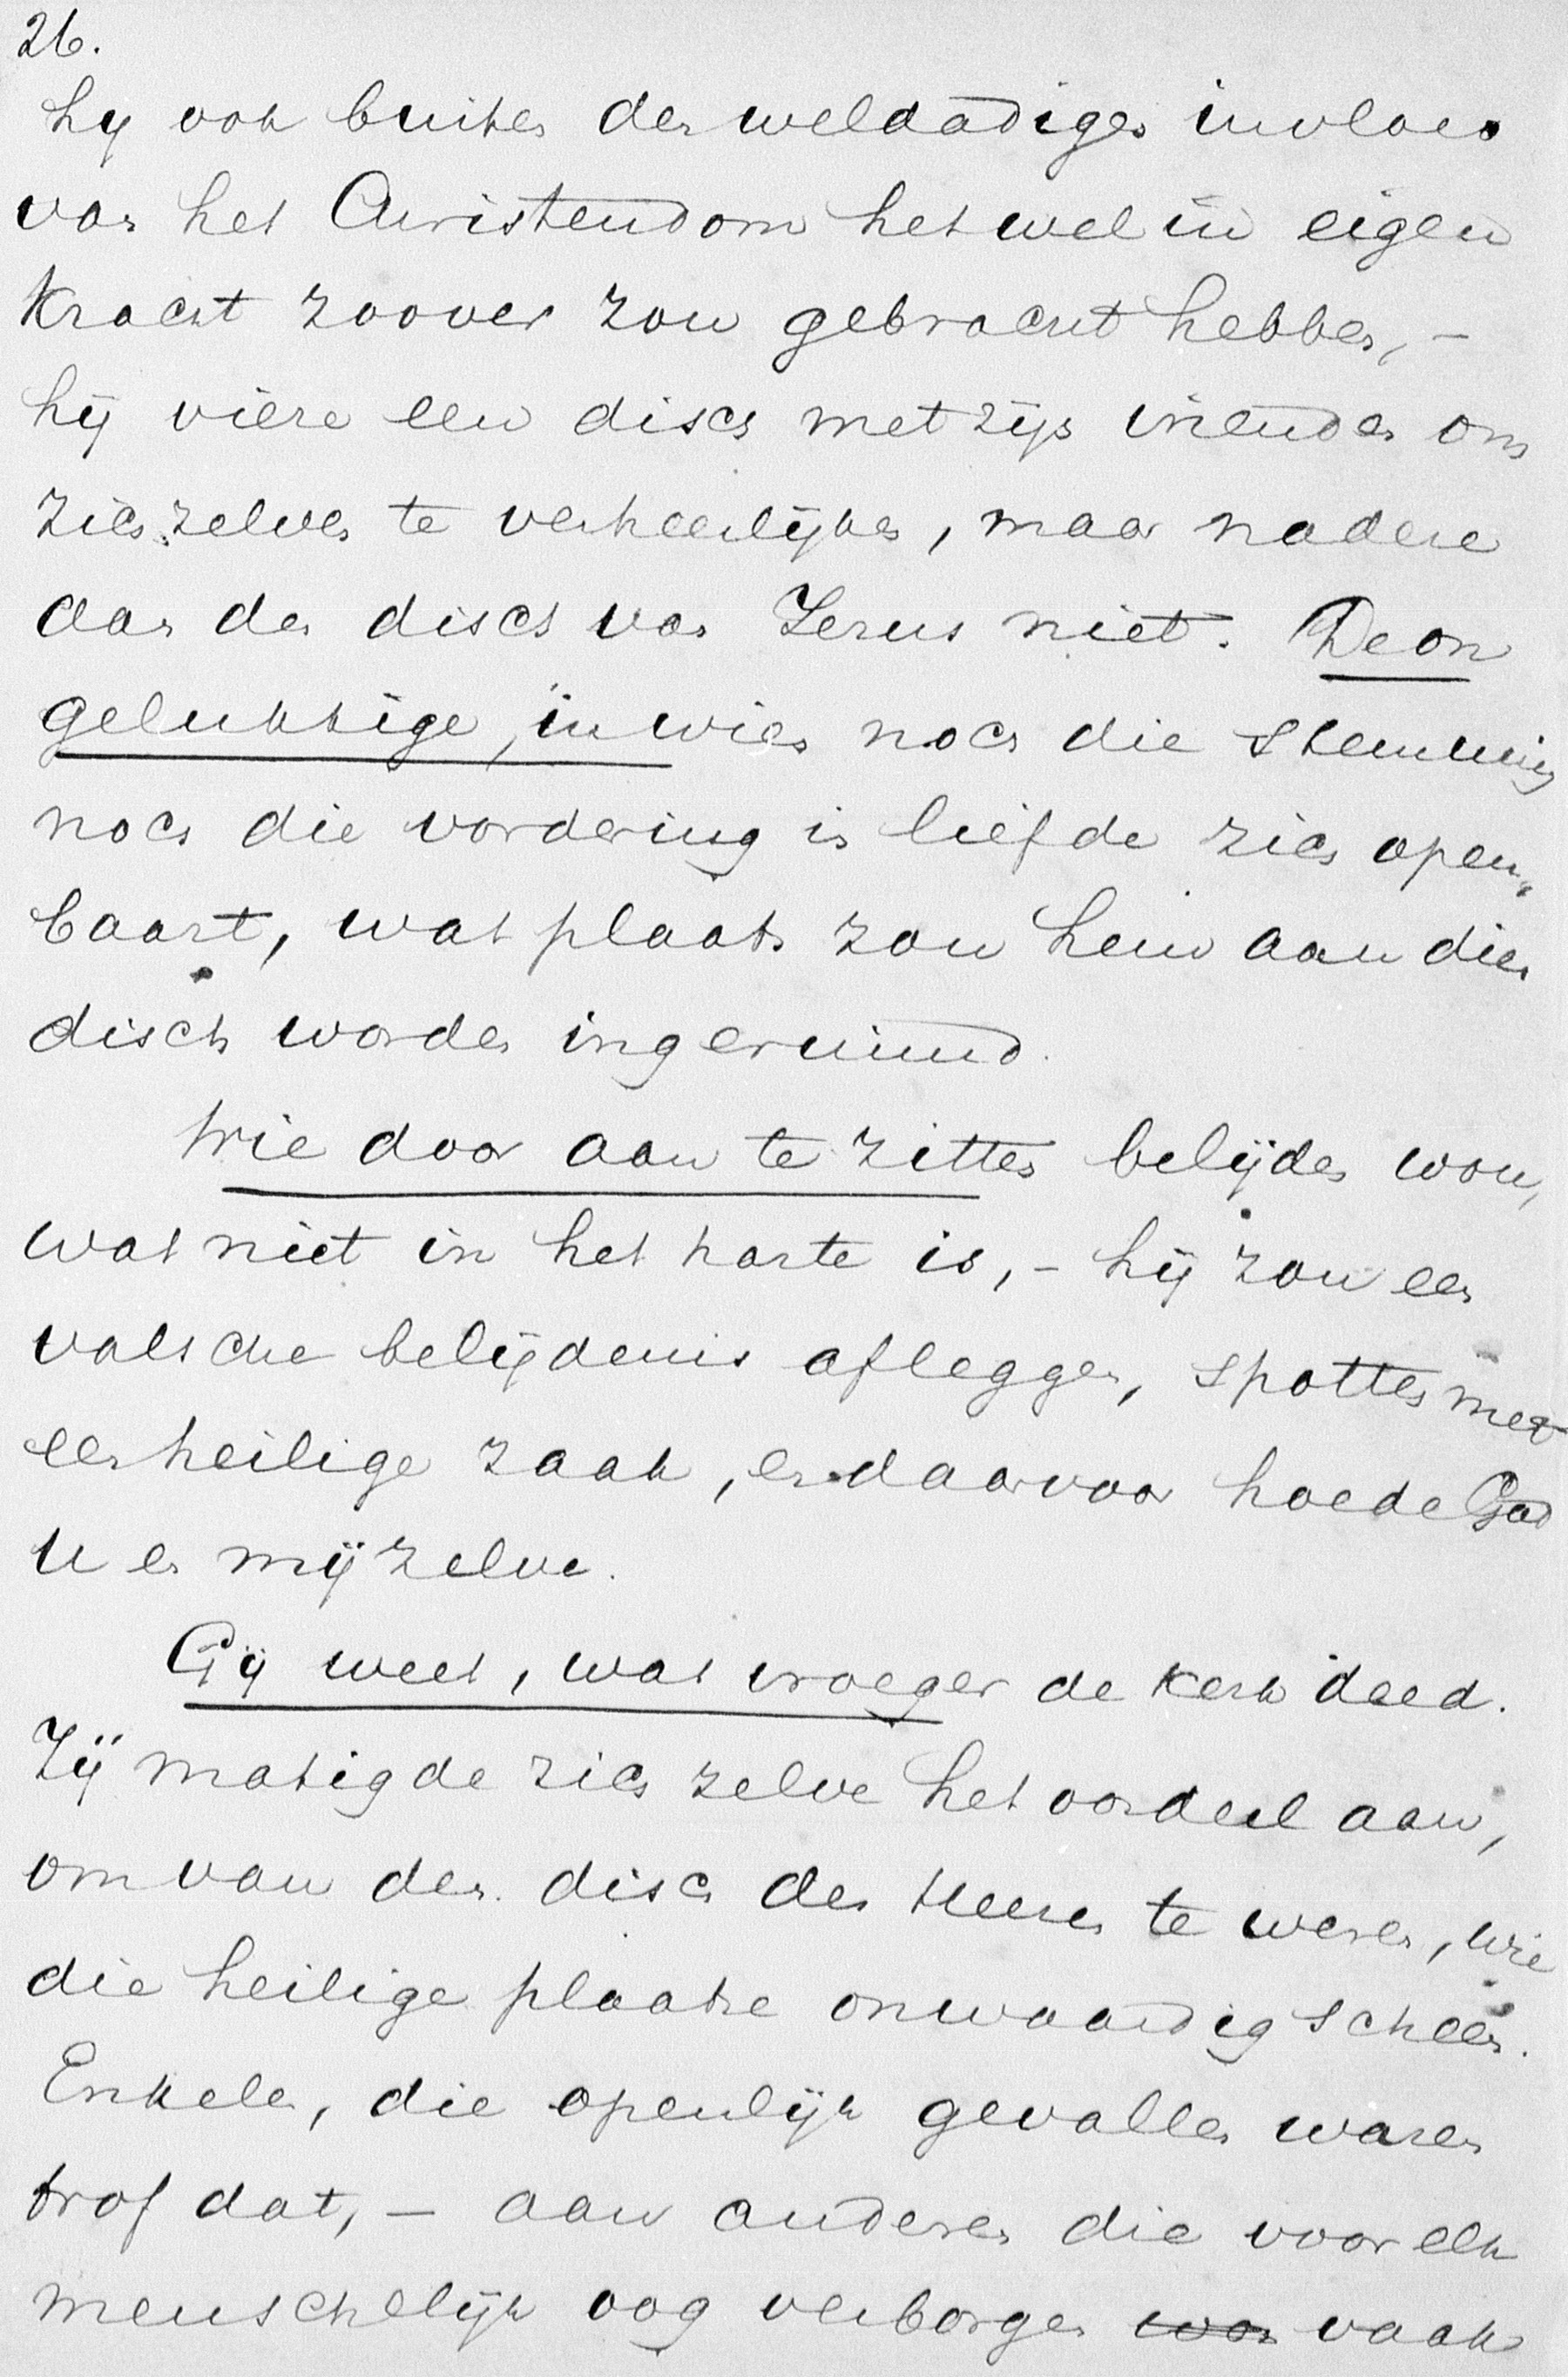 26.
hij ook buiten den weldadigen invloed
van het Christendom het wel in eigen
kracht zoover zou gebracht hebben, -
hij viere een disch met zijn vrienden om
zich zelven te verheerlijken, maar nadere
aan den disch van Jezus niet. De on
gelukkige, in wien noch die stemming
noch die vordering in liefde zich open„
baart, wat plaats zou hem aan dien
disch worden ingeruimd.
Wie door aan te zitten belijden wou,
wat niet in het harte is, - hij zou een
valsche belijdenis afleggen, spotten met
een heilige zaak, en daarvoor hoede God
U en mijzelve.
Gij weet, wat vroeger de kerk deed.
Zij matigde zich zelve het oordeel aan,
om van den disch des Heeren te weren, wie
die heilige plaatse onwaardig scheen.
Enkelen, die openlijk gevallen waren
trof dat, - aan anderen die voor elk
menschelijk oog verborgen was vaak